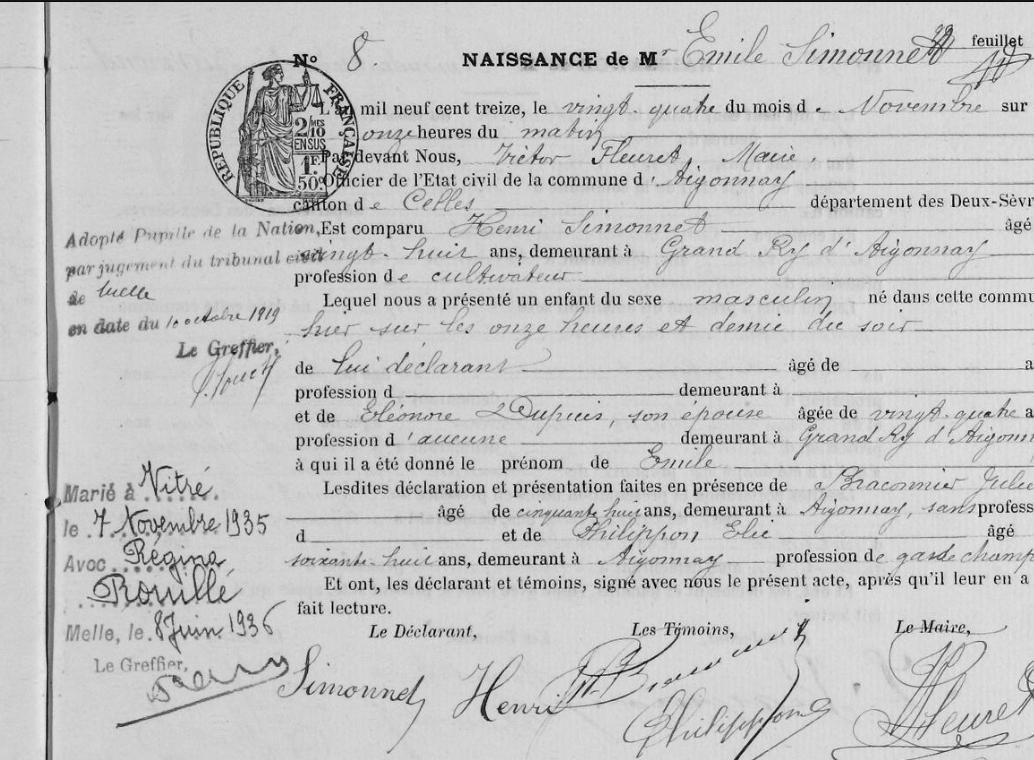 N° 8. NAISSANCE de Mr Emile Simonnet feuillet
RÉPUBLIQUE FRANÇAISE
2/10 MES EN SUS
1F. 50c
L'an mil neuf cent treize, le vingt-quatre du mois de Novembre sur
onze heures du matin
Par devant Nous, Victor Fleuret, Maire,
Officier de l'Etat civil de la commune d'Aigonnay
canton de Celles département des Deux-Sèvr
Est comparu Henri Simonnet âgé
vingt-huit ans, demeurant à Grand Ry d'Aigonnay
profession de cultivateur
Lequel nous a présenté un enfant du sexe masculin né dans cette commu
hier sur les onze heures et demie du soir
de lui déclarant âgé de a
profession d demeurant à
et de Eléonore Dupuis, son épouse âgée de vingt-quatre a
profession d'aucune demeurant à Grand Ry d'Aigonn
à qui il a été donné le prénom de Emile
Lesdites déclaration et présentation faites en présence de Braconnier Jules
âgé de cinquante huit ans, demeurant à Aigonnay, sans profess
d et de Philippon Elie âgé
soixante-huit ans, demeurant à Aigonnay profession de garde champ
Et ont, les déclarant et témoins, signé avec nous le présent acte, après qu'il leur en a
fait lecture.
Le Déclarant, Les Témoins, Le Maire,
Simonnet Henri Philippon Fleuret
Adopté Pupille de la Nation,
par jugement du tribunal civil
de Melle
en date du 10 octobre 1919
Le Greffier,
Marié à Vitré
le 7 Novembre 1935
Avec Régina
Rouillé
Melle, le 8 Juin 1936
Le Greffier,